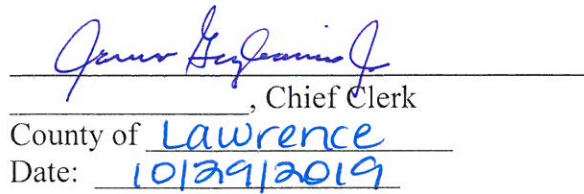 , Chief Clerk
County of Lawrence
Date: 10/29/2019